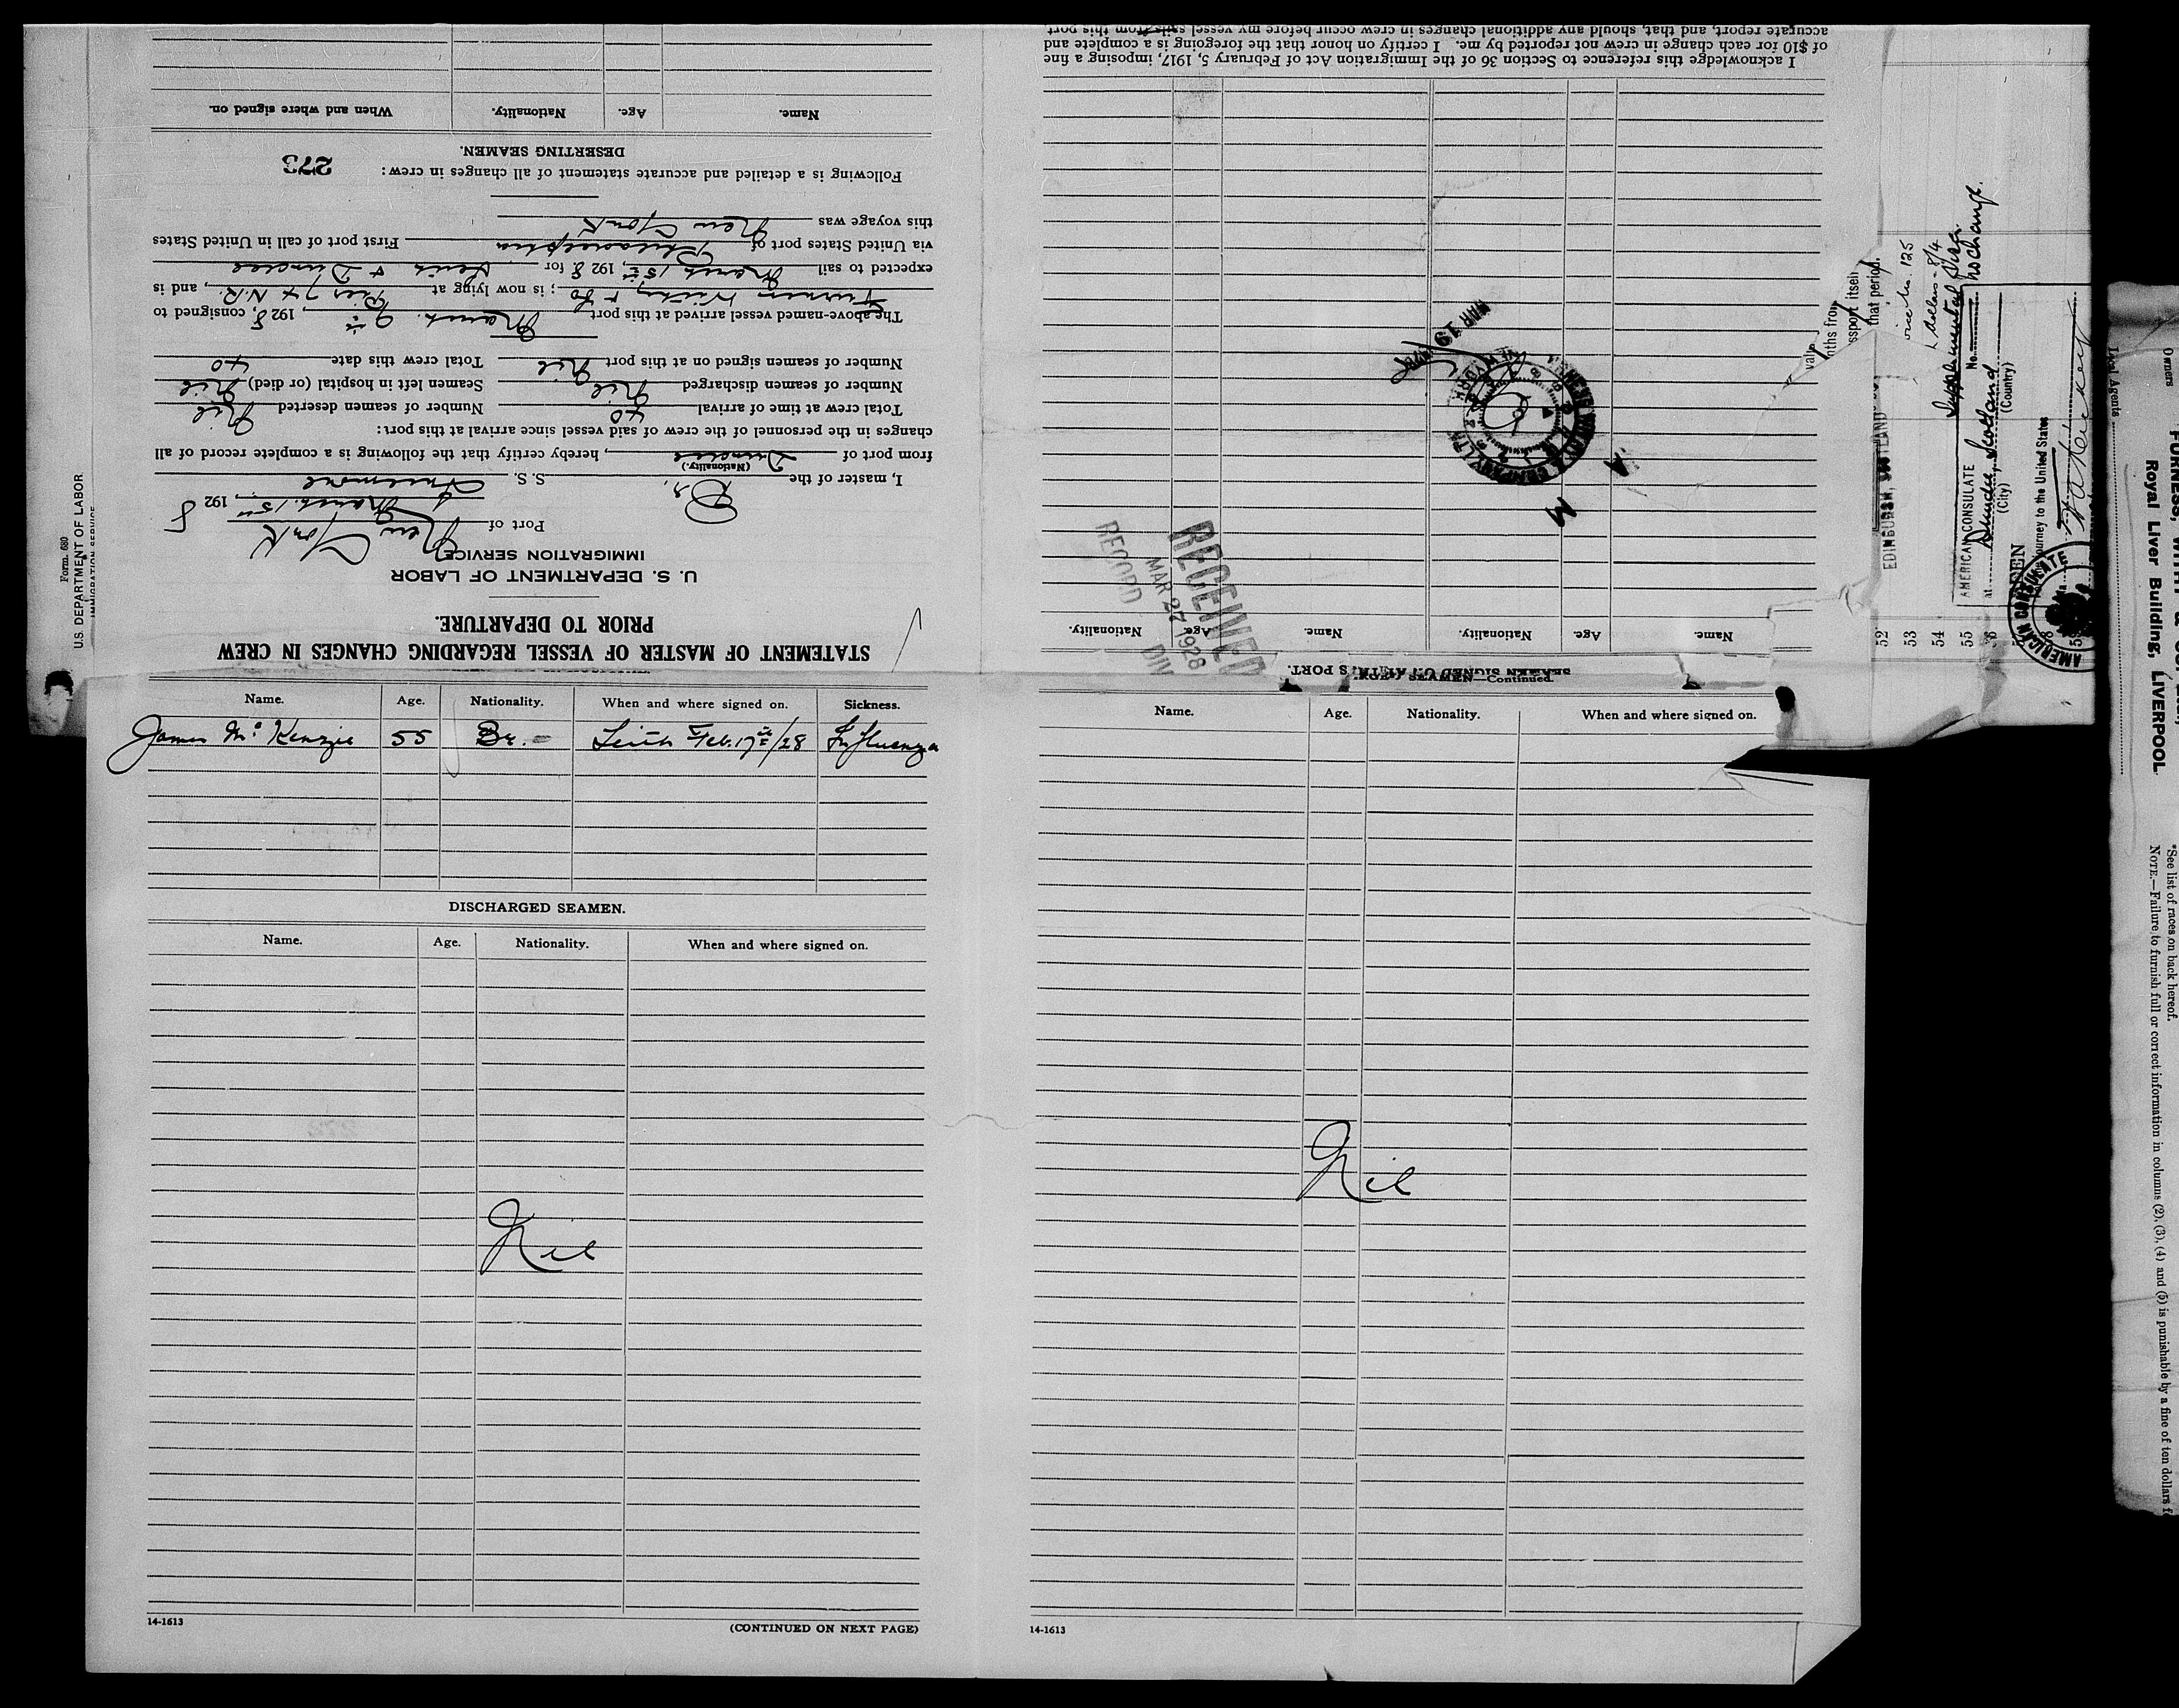 Form. 680
U.S. DEPARTMENT OF LABOR
IMMIGRATION SERVICE
STATEMENT OF MASTER OF VESSEL REGARDING CHANGES IN CREW
PRIOR TO DEPARTURE.
U. S. DEPARTMENT OF LABOR
IMMIGRATION SERVICE
Port of New York
March 15th, 1928
I, master of the Br. S. S.
(Nationality.)
from port of Dundee, hereby certify that the following is a complete record of all
changes in the personnel of the crew of said vessel since arrival at this port:
Total crew at time of arrival 40 Number of seamen deserted Nil
Number of seamen discharged Nil Seamen left in hospital (or died) Nil
Number of seamen signed on at this port Nil Total crew this date 40
The above-named vessel arrived at this port March 9th, 1928, consigned to
Furness Withy & Co; is now lying at Pier 74 N.R., and is
expected to sail March 15th, 1928 for Leith & Dundee
via United States port of Philadelphia First port of call in United States
this voyage was New York
Following is a detailed and accurate statement of all changes in crew:
273
DESERTING SEAMEN.
Name. Age. Nationality. When and where signed on.
SEAMEN SIGNED ON AT THIS PORT.
Name. Age. Nationality. Name. Age. Nationality.
RECEIVED
MAR 27 1928
RECORD DIV
FURNESS WITHY & COMPANY LTD
NEW YORK
MAR 13 1928
I acknowledge this reference to Section 36 of the Immigration Act of February 5, 1917, imposing a fine
of $10 for each change in crew not reported by me. I certify on honor that the foregoing is a complete and
accurate report, and that, should any additional changes in crew occur before my vessel sails from this port
Name. Age. Nationality. When and where signed on. Sickness.
James McKenzie 55 Br. Leith Feb. 17th/28 Influenza
DISCHARGED SEAMEN.
Name. Age. Nationality. When and where signed on.
Nil
14-1613
(CONTINUED ON NEXT PAGE)
SEAMEN—Continued.
Name. Age. Nationality. When and where signed on.
Nil
14-1613
nths from
ssport itself
that period.
125
Supplemental Visa
No. no charge.
EDINBURGH, SCOTLAND
AMERICAN CONSULATE
at Dundee, Scotland
(City) (Country)
journey to the United States
AMERICAN CONSULATE
52
53
54
55
Owners
Local Agents
FURNESS, WITHY &
Royal Liver Building, LIVERPOOL
*See list of races on back hereof.
NOTE.—Failure to furnish full or correct information in columns (2), (3), (4) and (5) is punishable by a fine of ten dollars f